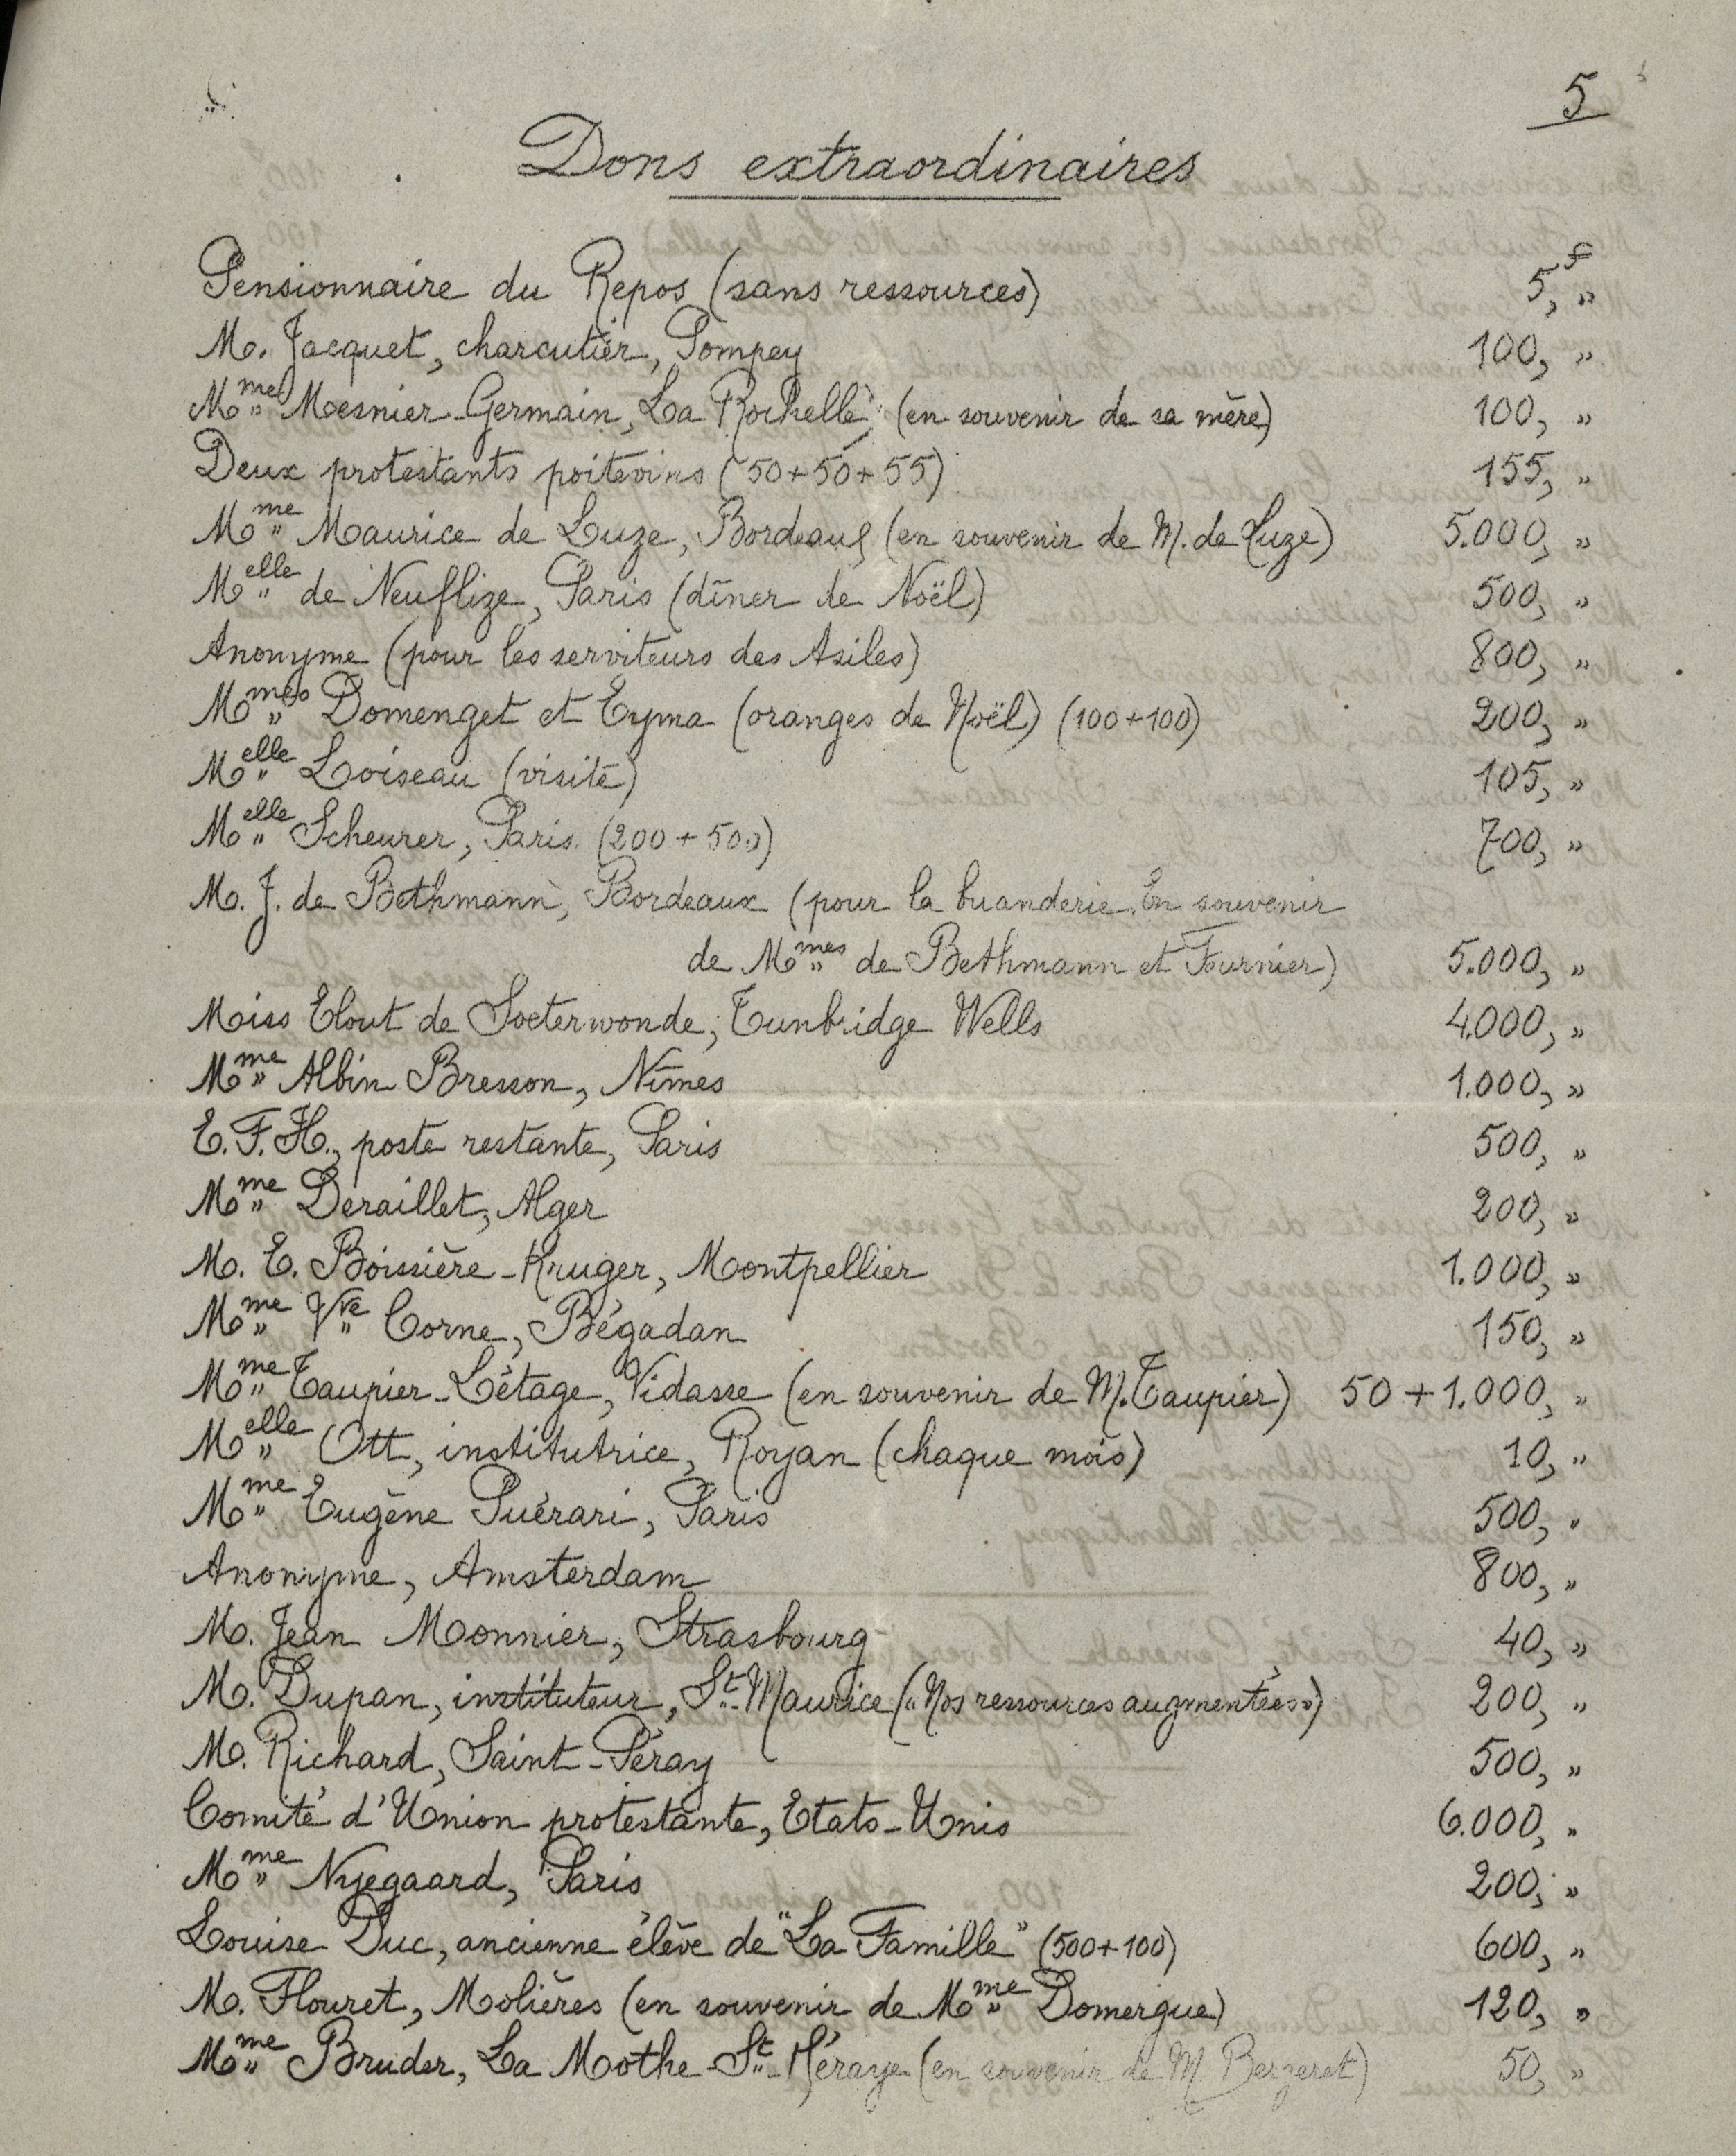 5
Dons extraordinaires
Pensionnaire du Repos (sans ressources) 5,f "
M. Jacquet, charcutier, Pompey 100, "
Mme Mesnier-Germain, La Rochelle (en souvenir de sa mère) 100, "
Deux protestants poitevins (50+50+55) 155, "
Mme Maurice de Luze, Bordeaux (en souvenir de M. de Luze) 5.000, "
Melle de Neuflize, Paris (dîner de Noël) 500, "
Anonyme (pour les serviteurs des Asiles) 800, "
Mmes Domenget et Eyma (oranges de Noël) (100+100) 200, "
Melle Loiseau (visite) 105, "
Melle Scheurer, Paris (200+500) 700, "
M. J. de Bethmann, Bordeaux (pour la buanderie. En souvenir
de Mmes de Bethmann et Fournier) 5.000, "
Miss Elout de Soeterwonde, Tunbridge Wells 4.000, "
Mme Albin Bresson, Nîmes 1.000, "
E.F.H., poste restante, Paris 500, "
Mme Deraillet, Alger 200, "
M. E. Boissière-Kruger, Montpellier 1.000, "
Mme Vve Corne, Bégadan 150, "
Mme Taupier-Létage, Vidasse (en souvenir de M. Taupier) 50+1.000, "
Melle Ott, institutrice, Royan (chaque mois) 10, "
Mme Eugène Puérari, Paris 500, "
Anonyme, Amsterdam 800, "
M. Jean Monnier, Strasbourg 40, "
M. Dupan, instituteur, St-Maurice («Nos ressources augmentées») 200, "
M. Richard, Saint-Péray 500, "
Comité d'Union protestante, Etats-Unis 6.000, "
Mme Nyegaard, Paris 200, "
Louise Duc, ancienne élève de "La Famille" (500+100) 600, "
M. Flouret, Molières (en souvenir de Mme Domergue) 120, "
Mme Bruder, La Mothe-St-Héraye (en souvenir de M. Bergeret) 50, "